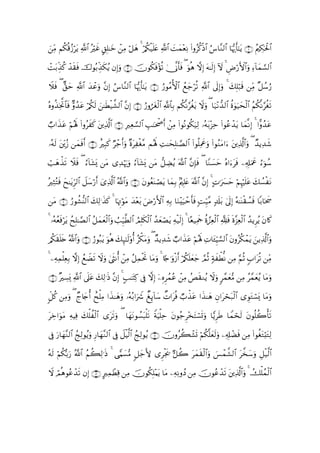 ٱلْحَكِيمُ ۝ يَٰٓأَيُّهَا ٱلنَّاسُ ٱذْكُرُوا۟ نِعْمَتَ ٱللَّهِ عَلَيْكُمْ ۚ هَلْ مِنْ خَٰلِقٍ غَيْرُ ٱللَّهِ يَرْزُقُكُم مِّنَ
ٱلسَّمَآءِ وَٱلْأَرْضِ ۚ لَآ إِلَٰهَ إِلَّا هُوَ ۖ فَأَنَّىٰ تُؤْفَكُونَ ۝ وَإِن يُكَذِّبُوكَ فَقَدْ كُذِّبَتْ
رُسُلٌ مِّن قَبْلِكَ ۚ وَإِلَى ٱللَّهِ تُرْجَعُ ٱلْأُمُورُ ۝ يَٰٓأَيُّهَا ٱلنَّاسُ إِنَّ وَعْدَ ٱللَّهِ حَقٌّ ۖ فَلَا
تَغُرَّنَّكُمُ ٱلْحَيَوٰةُ ٱلدُّنْيَا ۖ وَلَا يَغُرَّنَّكُم بِٱللَّهِ ٱلْغَرُورُ ۝ إِنَّ ٱلشَّيْطَٰنَ لَكُمْ عَدُوٌّ فَٱتَّخِذُوهُ
عَدُوًّا ۚ إِنَّمَا يَدْعُوا۟ حِزْبَهُۥ لِيَكُونُوا۟ مِنْ أَصْحَٰبِ ٱلسَّعِيرِ ۝ ٱلَّذِينَ كَفَرُوا۟ لَهُمْ عَذَابٌ
شَدِيدٌ ۖ وَٱلَّذِينَ ءَامَنُوا۟ وَعَمِلُوا۟ ٱلصَّٰلِحَٰتِ لَهُم مَّغْفِرَةٌ وَأَجْرٌ كَبِيرٌ ۝ أَفَمَن زُيِّنَ لَهُۥ
سُوٓءُ عَمَلِهِۦ فَرَءَاهُ حَسَنًا ۖ فَإِنَّ ٱللَّهَ يُضِلُّ مَن يَشَآءُ وَيَهْدِى مَن يَشَآءُ ۖ فَلَا تَذْهَبْ
نَفْسُكَ عَلَيْهِمْ حَسَرَٰتٍ ۚ إِنَّ ٱللَّهَ عَلِيمٌۢ بِمَا يَصْنَعُونَ ۝ وَٱللَّهُ ٱلَّذِىٓ أَرْسَلَ ٱلرِّيَٰحَ فَتُثِيرُ
سَحَابًا فَسُقْنَٰهُ إِلَىٰ بَلَدٍ مَّيِّتٍ فَأَحْيَيْنَا بِهِ ٱلْأَرْضَ بَعْدَ مَوْتِهَا ۚ كَذَٰلِكَ ٱلنُّشُورُ ۝ مَن
كَانَ يُرِيدُ ٱلْعِزَّةَ فَلِلَّهِ ٱلْعِزَّةُ جَمِيعًا ۚ إِلَيْهِ يَصْعَدُ ٱلْكَلِمُ ٱلطَّيِّبُ وَٱلْعَمَلُ ٱلصَّٰلِحُ يَرْفَعُهُۥ ۚ
وَٱلَّذِينَ يَمْكُرُونَ ٱلسَّيِّـَٔاتِ لَهُمْ عَذَابٌ شَدِيدٌ ۖ وَمَكْرُ أُو۟لَٰٓئِكَ هُوَ يَبُورُ ۝ وَٱللَّهُ خَلَقَكُم
مِّن تُرَابٍ ثُمَّ مِن نُّطْفَةٍ ثُمَّ جَعَلَكُمْ أَزْوَٰجًا ۚ وَمَا تَحْمِلُ مِنْ أُنثَىٰ وَلَا تَضَعُ إِلَّا بِعِلْمِهِۦ ۚ
وَمَا يُعَمَّرُ مِن مُّعَمَّرٍ وَلَا يُنقَصُ مِنْ عُمُرِهِۦٓ إِلَّا فِى كِتَٰبٍ ۚ إِنَّ ذَٰلِكَ عَلَى ٱللَّهِ يَسِيرٌ ۝
وَمَا يَسْتَوِى ٱلْبَحْرَانِ هَٰذَا عَذْبٌ فُرَاتٌ سَآئِغٌ شَرَابُهُۥ وَهَٰذَا مِلْحٌ أُجَاجٌ ۖ وَمِن كُلٍّ
تَأْكُلُونَ لَحْمًا طَرِيًّا وَتَسْتَخْرِجُونَ حِلْيَةً تَلْبَسُونَهَا ۖ وَتَرَى ٱلْفُلْكَ فِيهِ مَوَاخِرَ
لِتَبْتَغُوا۟ مِن فَضْلِهِۦ وَلَعَلَّكُمْ تَشْكُرُونَ ۝ يُولِجُ ٱلَّيْلَ فِى ٱلنَّهَارِ وَيُولِجُ ٱلنَّهَارَ فِى
ٱلَّيْلِ وَسَخَّرَ ٱلشَّمْسَ وَٱلْقَمَرَ كُلٌّ يَجْرِى لِأَجَلٍ مُّسَمًّى ۚ ذَٰلِكُمُ ٱللَّهُ رَبُّكُمْ لَهُ
ٱلْمُلْكُ ۚ وَٱلَّذِينَ تَدْعُونَ مِن دُونِهِۦ مَا يَمْلِكُونَ مِن قِطْمِيرٍ ۝ إِن تَدْعُوهُمْ لَا